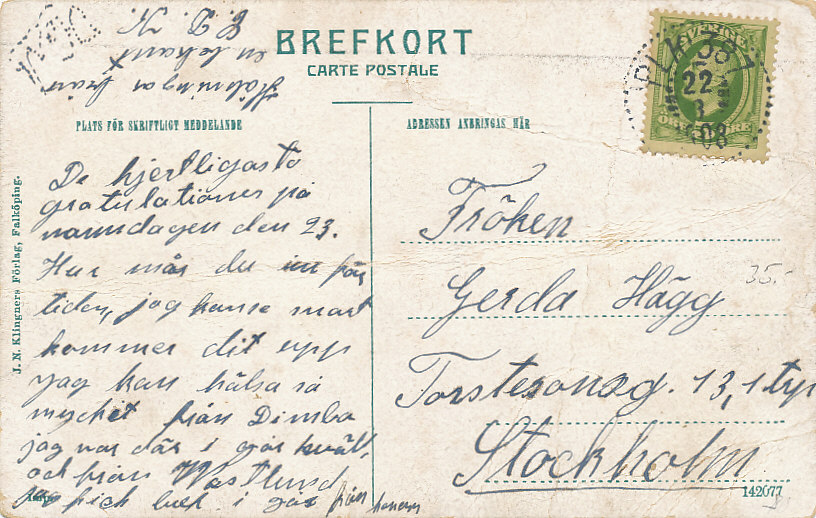 BREFKORT
CARTE POSTALE
PLATS FÖR SKRIFTLIGT MEDDELANDE
ADRESSEN ANBRINGAS HÄR
SVERIGE
PLK 387
22
3
08
De hjertligasto
gratulationer på
namndagen den 23.
Hur mår du för
tiden, jag kanse snart
kommer dit upp
jag kan hälsa så
mycket från Dimbo
jag var där i går kväll,
och från Wästlund
jag fick bref i går från honom
Hälsningar från
en bekant
Fröken
Gerda Hägg
Torstensonsg. 13, 1 tr
Stockholm
35.-
142077
J. N. Klingners Förlag, Falköping.